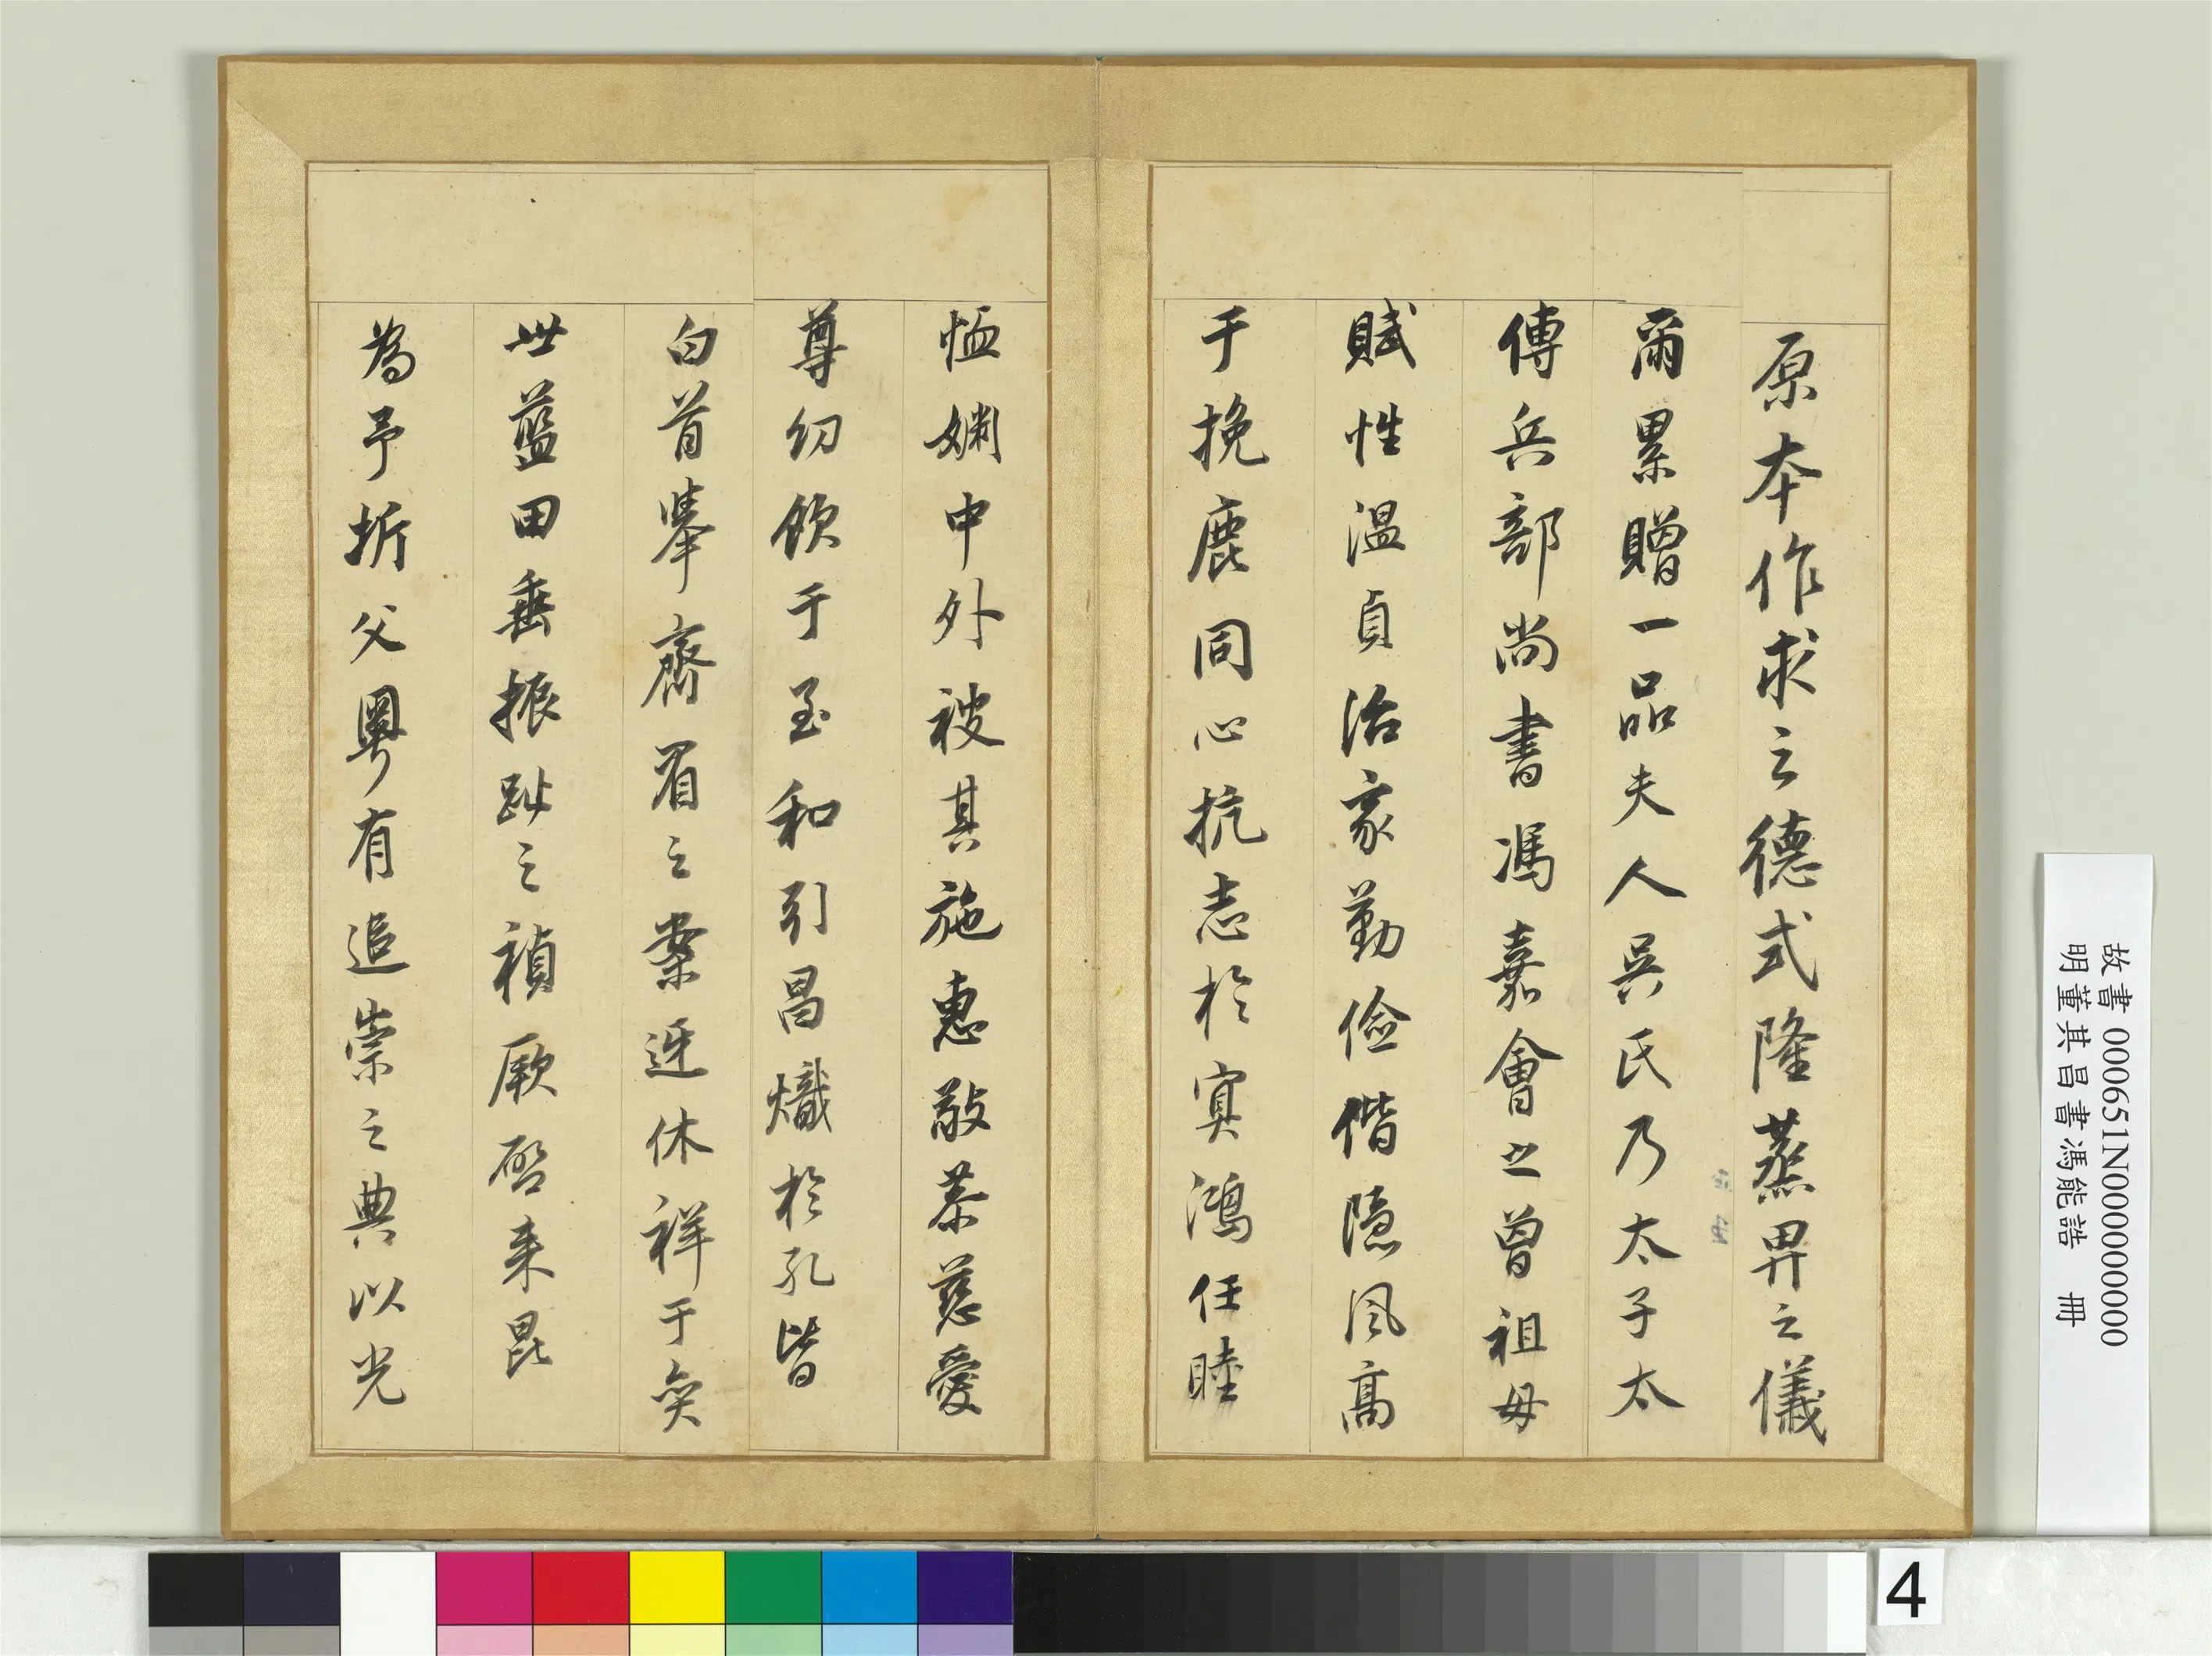 原本作求之德式隆蒸畀之儀
爾累贈一品夫人吳氏乃太子太
傅兵部尚書馮嘉會之曾祖母
賦性溫貞治家勤儉偕隱風高
于挽鹿同心抗志於冥鴻任睦
恤婣中外被其施惠敬恭慈愛
尊幼飲于至和引昌熾於孔皆
白首舉齊眉之案迓休祥于奕
世藍田垂振趾之禎厥啓来昆
為予圻父粵有追崇之典以光
故書 000651N000000000
明董其昌書馮能誥 冊
4